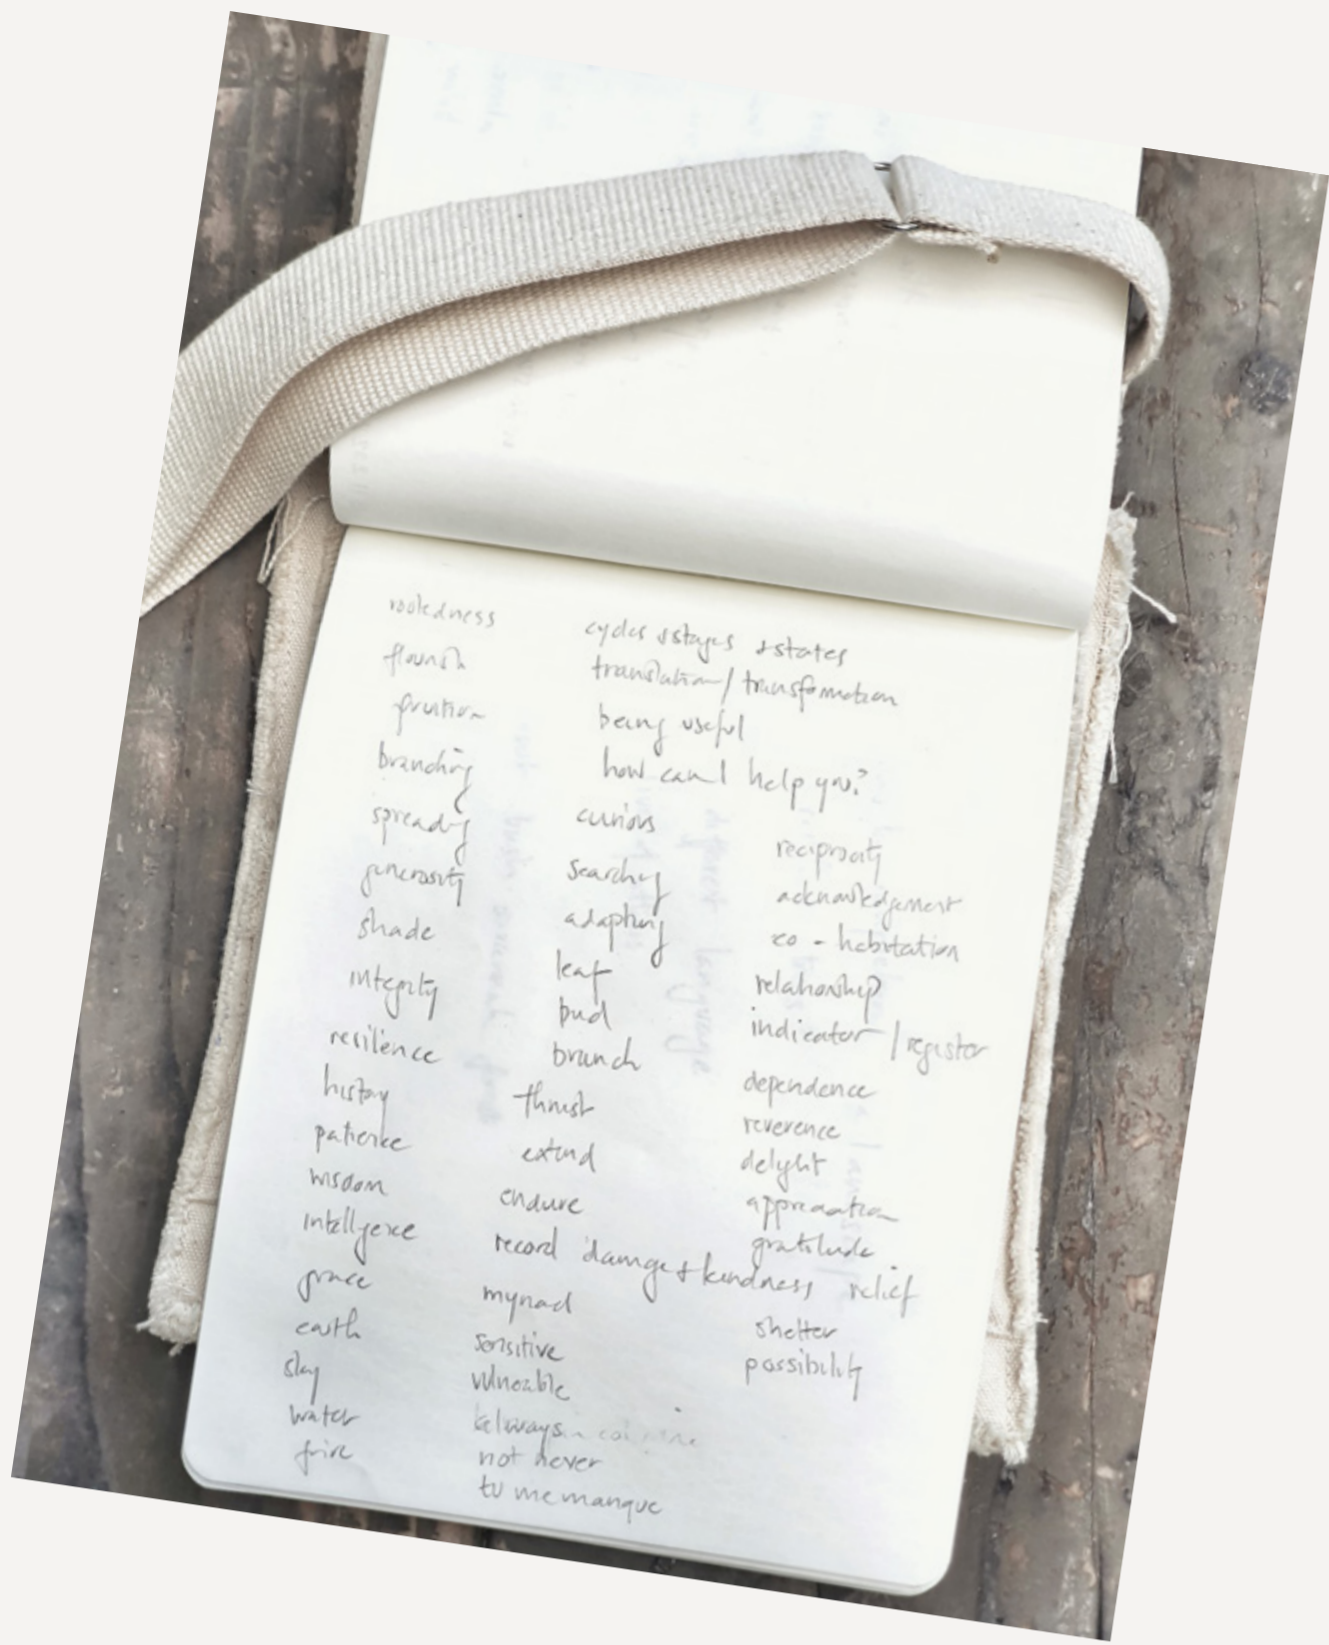 rootedness
flourish
fruition
branching
spreading
generosity
shade
integrity
resilience
history
patience
wisdom
intelligence
grace
earth
sky
water
fire
cycles + stages + states
translation / transformation
being useful
how can I help you?
curious
searching
adapting
leaf
bud
branch
thrust
extend
endure
record damage + kindness relief
myriad
sensitive
vulnerable
always
not never
tu me manque
reciprocity
acknowledgement
co-habitation
relationship
indicator / register
dependence
reverence
delight
appreciation
gratitude
shelter
possibility